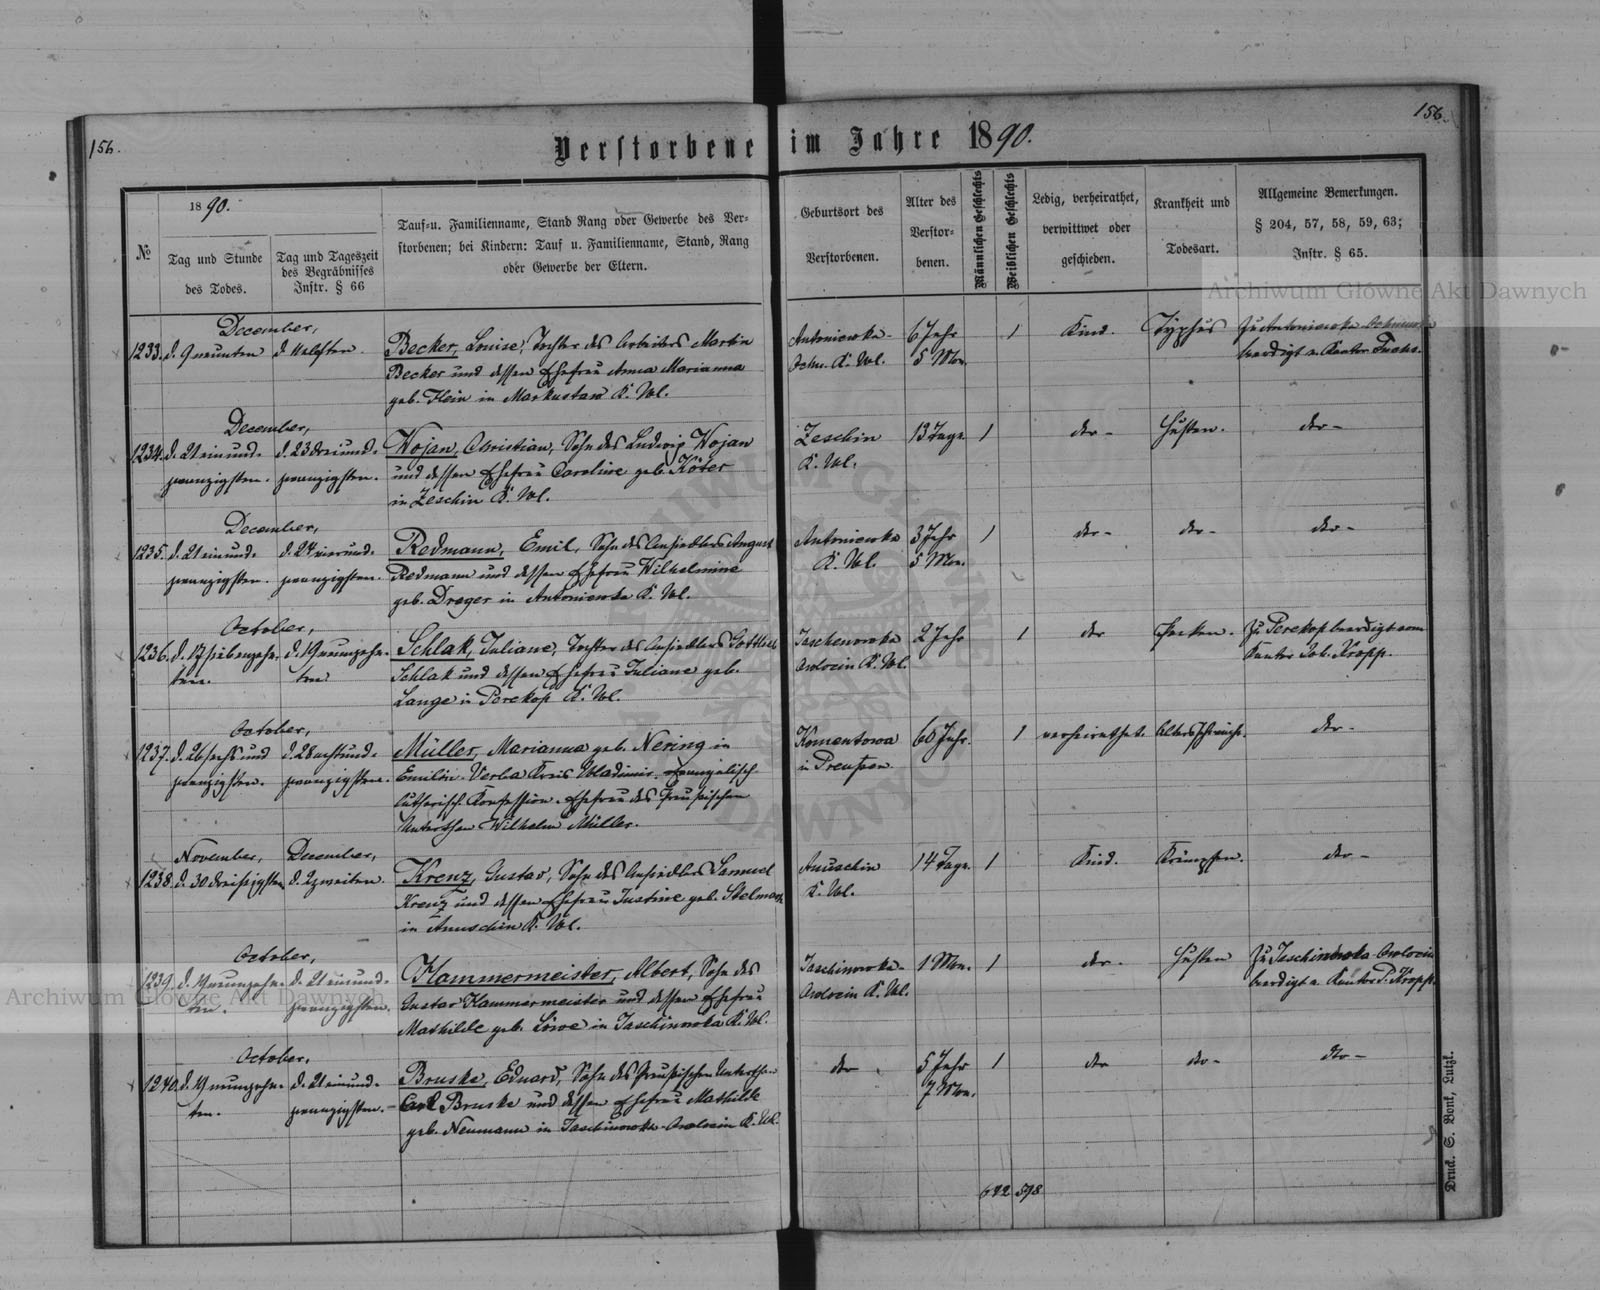 156.
156.
Verstorbene im Jahre 1890.
№
1890.
Tag und Stunde
des Todes.
Tag und Tageszeit
des Begräbnisses
Instr. § 66
Tauf-u. Familienname, Stand Rang oder Gewerbe des Ver-
storbenen; bei Kindern: Tauf u. Familienname, Stand, Rang
oder Gewerbe der Eltern.
Geburtsort des
Verstorbenen.
Alter des
Verstor-
benen.
Männlichen Geschlechts
Weiblichen Geschlechts
Ledig, verheirathet,
verwittwet oder
geschieden.
Krankheit und
Todesart.
Allgemeine Bemerkungen.
§ 204, 57, 58, 59, 63;
Instr. § 65.
December,
1233. d. 9 neunten d. 11 elften.
Becker, Louise, Tochter des Arbeiters Martin
Becker und dessen Ehefrau Anna Marianna
geb. Hein in Markustaw K. Wl.
Antoniewka-
K. Wl.
6 Jahr
5 Mon.
1
Kind.
Typhus
Zu Antoniewka
beerdigt v. Kantor Fuchs.
December,
1234. d. 21 einund- d. 23 dreiund-
zwanzigsten. zwanzigsten.
Wojan, Christian, Sohn des Ludwig Wojan
und dessen Ehefrau Caroline geb. Köter
in Zeschin K. Wl.
Zeschin
K. Wl.
13 Tage
1
dto-
Husten.
dto-
December,
1235. d. 21 einund- d. 24 vierund-
zwanzigsten. zwanzigsten.
Redmann, Emil, Sohn des Ansiedlers August
Redmann und dessen Ehefrau Wilhelmine
geb. Dreger in Antoniewka K. Wl.
Antoniewka
K. Wl.
3 Jahr
5 Mon.
1
dto-
dto-
dto-
October,
1236. d. 17 siebenzehn- d. 19 neunzehn-
ten. ten
Schlak, Juliane, Tochter des Ansiedlers Gottlieb
Schlak und dessen Ehefrau Juliane geb.
Lange in Perekop K. Wl.
Jaschenowka
Owlocin K. Wl.
2 Jahr
1
dto
Pocken.
Zu Perekop beerdigt vom
Kantor Joh. Kropp.
October,
1237. d. 26 sechs und d. 28 achtund-
zwanzigsten. zwanzigsten.
Müller, Marianna geb. Nering in
Emilin-Verba Kreis Wladimir. Evangelisch-
lutherisch. Konfession. Ehefrau des Preußischen
Unterthan Wilhelm Müller.
Komentowa
in Preußen.
60 Jahr.
1
verheirathet.
Altersschwäche.
dto-
November, December,
1238. d. 30 dreißigsten. d. 2 zweiten.
Krenz, Gustav, Sohn des Ansiedlers Samuel
Krenz und dessen Ehefrau Justine geb.
in Anuschin K. Wl.
Anuschin
K. Wl.
14 Tage.
1
Kind.
Krämpfen.
dto-
October,
1239. d. 19 neunzehn- d. 21 einund-
ten. zwanzigsten.
Hammermeister, Albert, Sohn des
Gustav Hammermeister und dessen Ehefrau
Mathilde geb. Löwe in Jaschinowka K. Wl.
Jaschinowka-
Owlocin K. Wl.
1 Mon.
1
dto-
Husten
Zu Jaschinowka-Owlocin
beerdigt v. Kantor P. Kropp.
October,
1240. d. 19 neunzehn- d. 21 einund-
ten. zwanzigsten.
Bruske, Eduard, Sohn des Preußischen Unterthan
Carl Bruske und dessen Ehefrau Mathilde
geb. Neumann in Jaschinowka-Owlocin K. Wl.
dto
5 Jahr
7 Mon.
1
dto
dto-
dto-
642 598
Druck. S. Bonk, Lutzk.
Archiwum Główne Akt Dawnych
Archiwum Główne Akt Dawnych